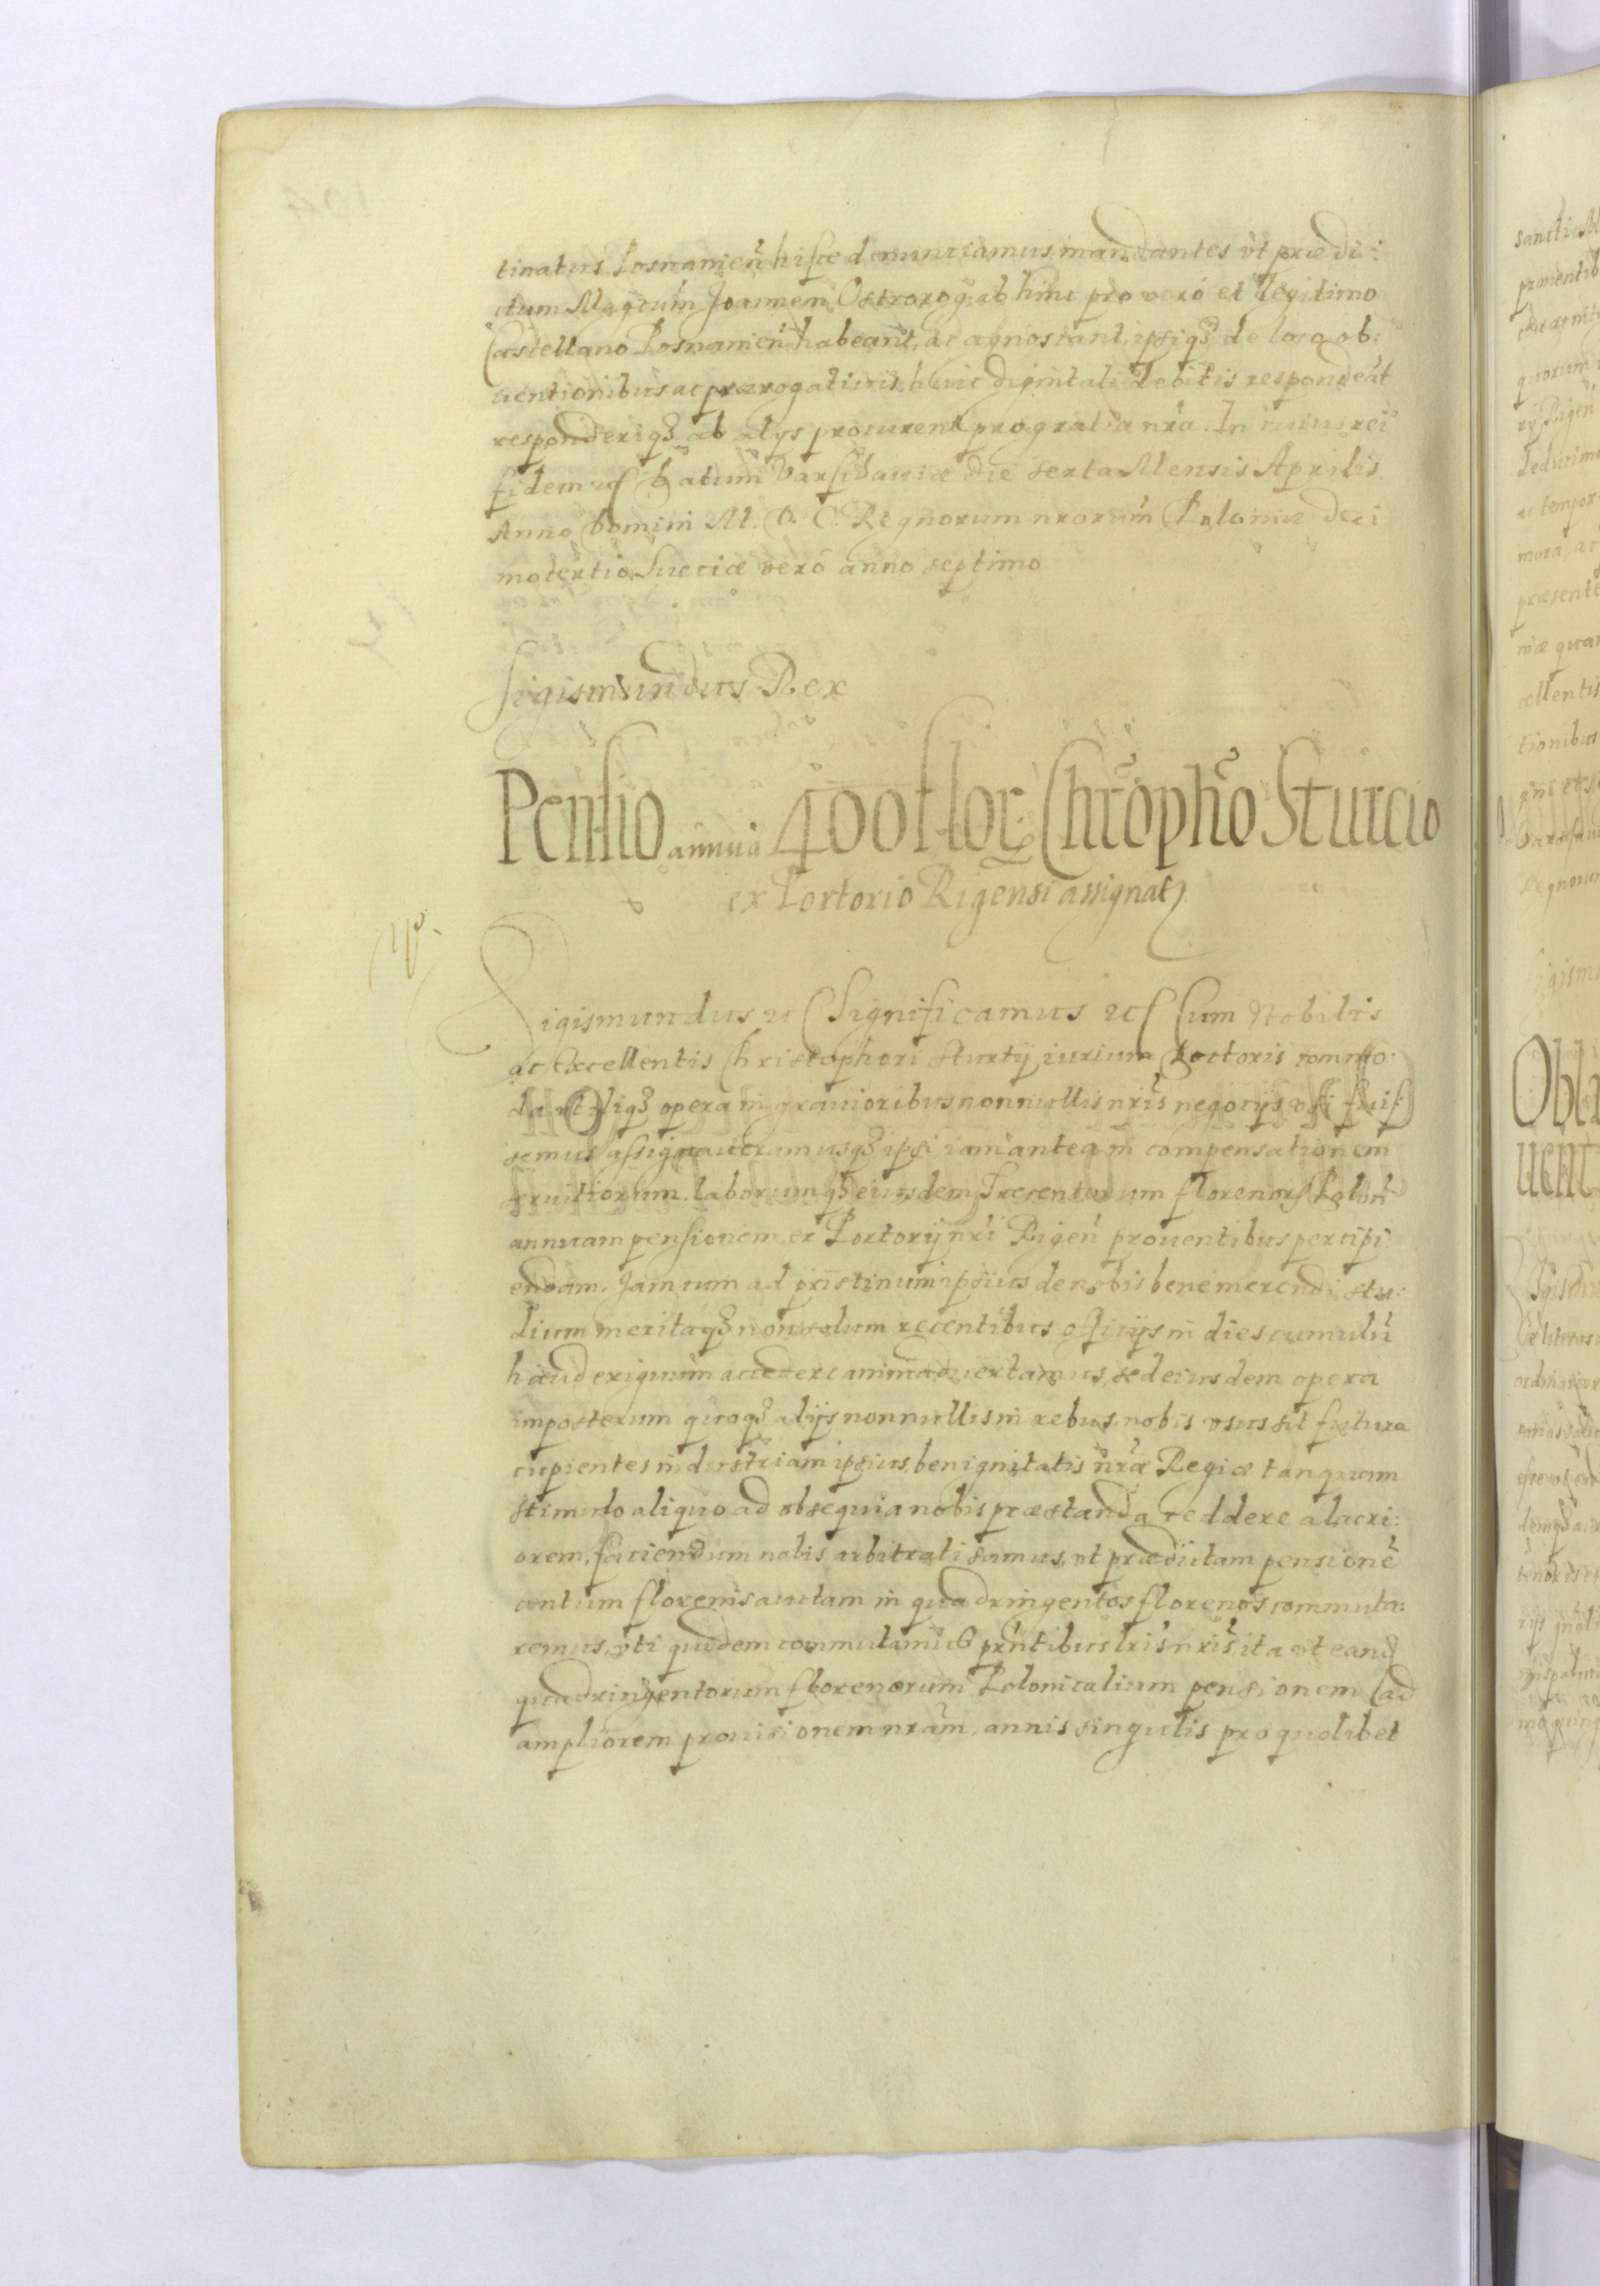 tinatus Posnanień hisce denunciamus mandantes vt prædi:
ctum Magcum Joannem Ostrorog ab hinc pro vero et legitimo
Castellano Posnanień habeant, ac agnoscant, ipsiqʒ de loco ob:
uentionibus ac prærogatiuis huic dignitati debitis respondeāt
responderiqʒ ab alys procurent pro gratia nrā. In cuius rei
fidem etc Datum Varschauiæ die sexta Mensis Aprilis
Anno Domini M. D. C. Regnorum nrorum Poloniæ deci
motertio Sueciæ vero anno septimo
Sigismundus Rex
Pensio annua 400 flor Chrõphõ Sturcio
ex Portorio Rigensi assignat
Sigismundus etc Significamus etc Cum Nobilis
ac Excellentis Christophori Sturtij iurium Doctoris commo:
da vtiliqʒ opera in grauioribus nonnullis nrīs negocijs vsi fuis:
semus assignaueramusqʒ ipsi iam antea in compensationem
seruitiorum laborumqʒ eiusdem Trecentorum florenor Polon
annuam pensionem ex Portorij nrī Rigeń prouentibus percipi
endam. Jam cum ad pristinum ipsius de nobis benemerendi stu:
dium meritaqʒ non solum recentibus officijs in dies cumulū
haud exiguum accedere animaduertamus, sed eiusdem opera
imposterum quoqʒ alijs nonnullis in rebus nobis vsus sit futura
cupientes industriam ipsius benignitatis nrǣ Regiæ tanquam
stimulo aliquo ad obsequia nobis præstanda reddere alacri:
orem, faciendum nobis arbitrati sumus, vt prædictam pensionē
centum florenis auctam in quadringentos florenos commuta:
remus, vti quidem commutamus prntibus lris nrīs ita vt eand
quadringentorum florenorum Polonicalium pensionem ad
ampliorem prouisionem nram, annis singulis pro quolibet